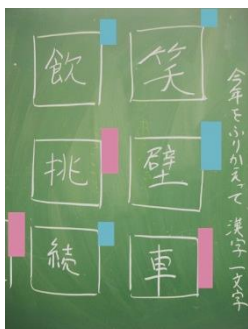 今年をふりかえって 漢字一文字
笑
壁
車
飲
挑
続